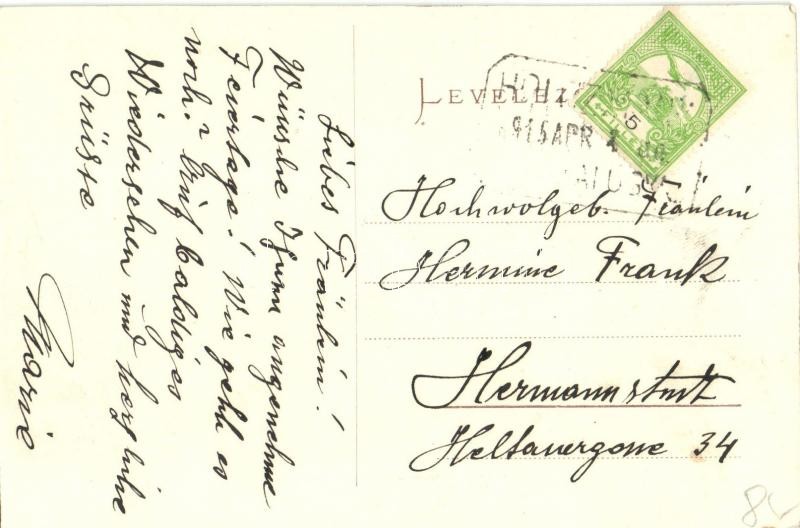 Liebes Fräulein!
Wünsche Ihnen angenehme
Feiertage! Wie geht es
noch? Auf baldiges
Wiedersehen und herzliche
Grüsse
Marie
LEVELEZ
915 APR
Hochwolgeb. Fräulein
Hermine Frank
Hermannstadt
Heltauergasse 34